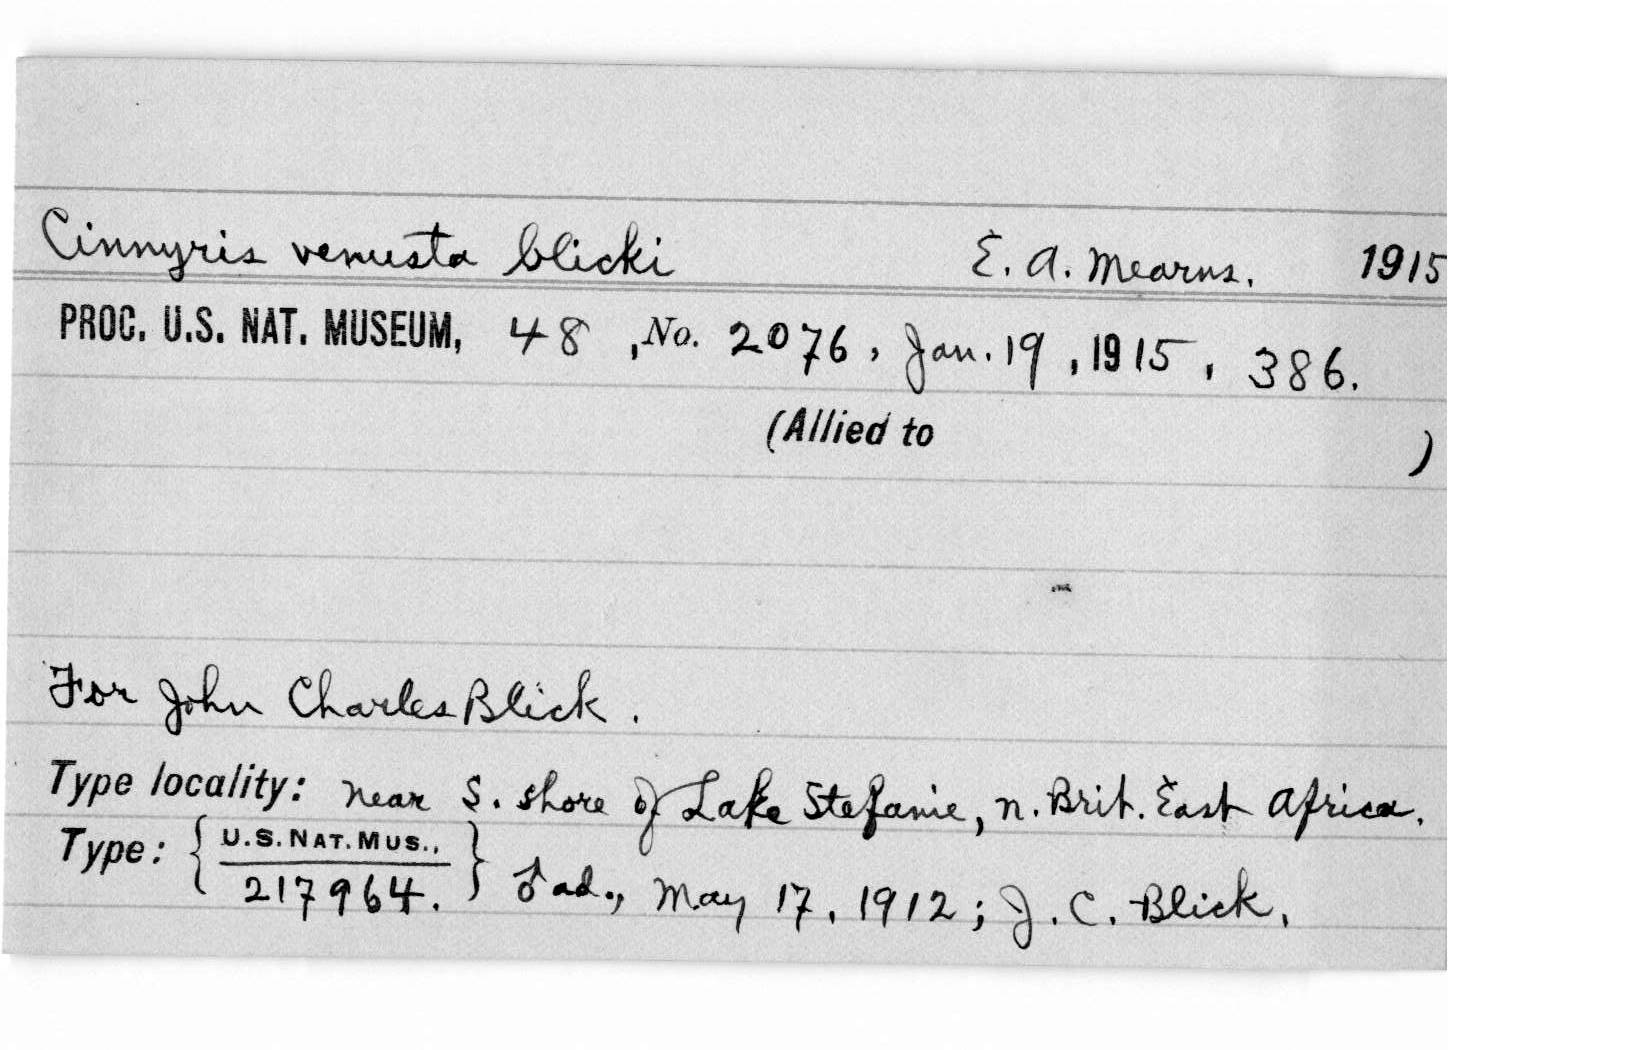 Cinnyris venusta blicki E. A. Mearns. 1915
PROC. U.S. NAT. MUSEUM, 48, No. 2076, Jan. 19, 1915, 386.
(Allied to )
For John Charles Blick.
Type locality: near S. shore of Lake Stefanie, n. Brit. East Africa.
Type: { U.S. NAT. MUS., 217964. } ♂ ad., May 17, 1912; J. C. Blick.